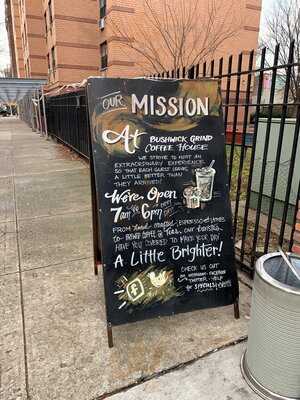 OUR MISSION
At BUSHWICK GRIND
COFFEE HOUSE
WE STRIVE TO HOST AN
EXTRAORDINARY EXPERIENCE
SO THAT EACH GUEST LEAVES
A LITTLE BETTER THAN
THEY ARRIVED!
We're Open
7am 6pm
FROM Hand-crafted ESPRESSO &
COFFEE & TEAS, OUR
HAVE YOU COVERED TO MAKE YOUR DAY
A Little Brighter!
CHECK US OUT
ON INSTAGRAM - FACEBOOK
TWITTER - YELP
FOR SPECIALS